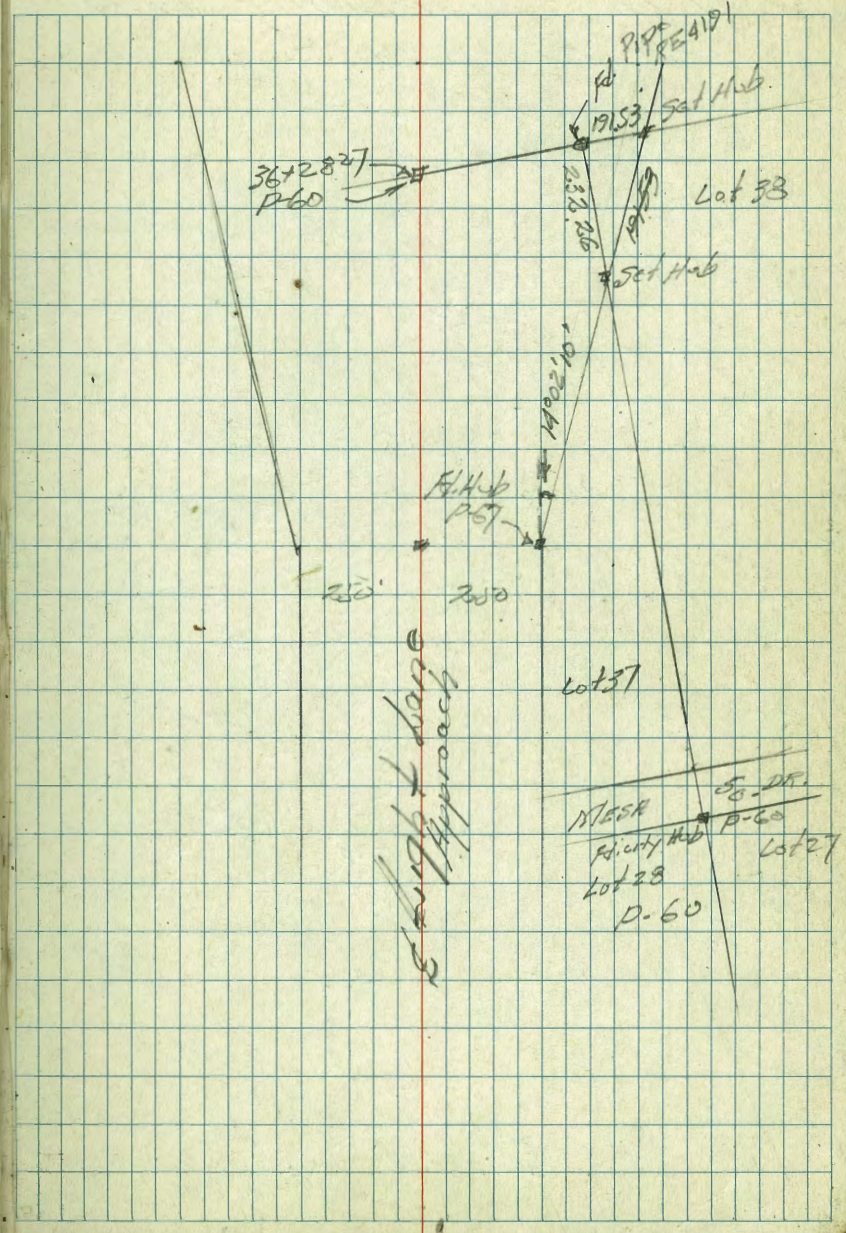 Fd. Pipe
RE 4191
191.53
Set Hub
36+28 27
P-60
232.26
191.53
Lot 38
Set Hub
14°02'10"
Fd. Hub
P-67
250'
250
Flight Lane
Approach
Lot 37
MESA
So. DR.
P-60
Fd City Hub
Lot 27
Lot 28
P-60